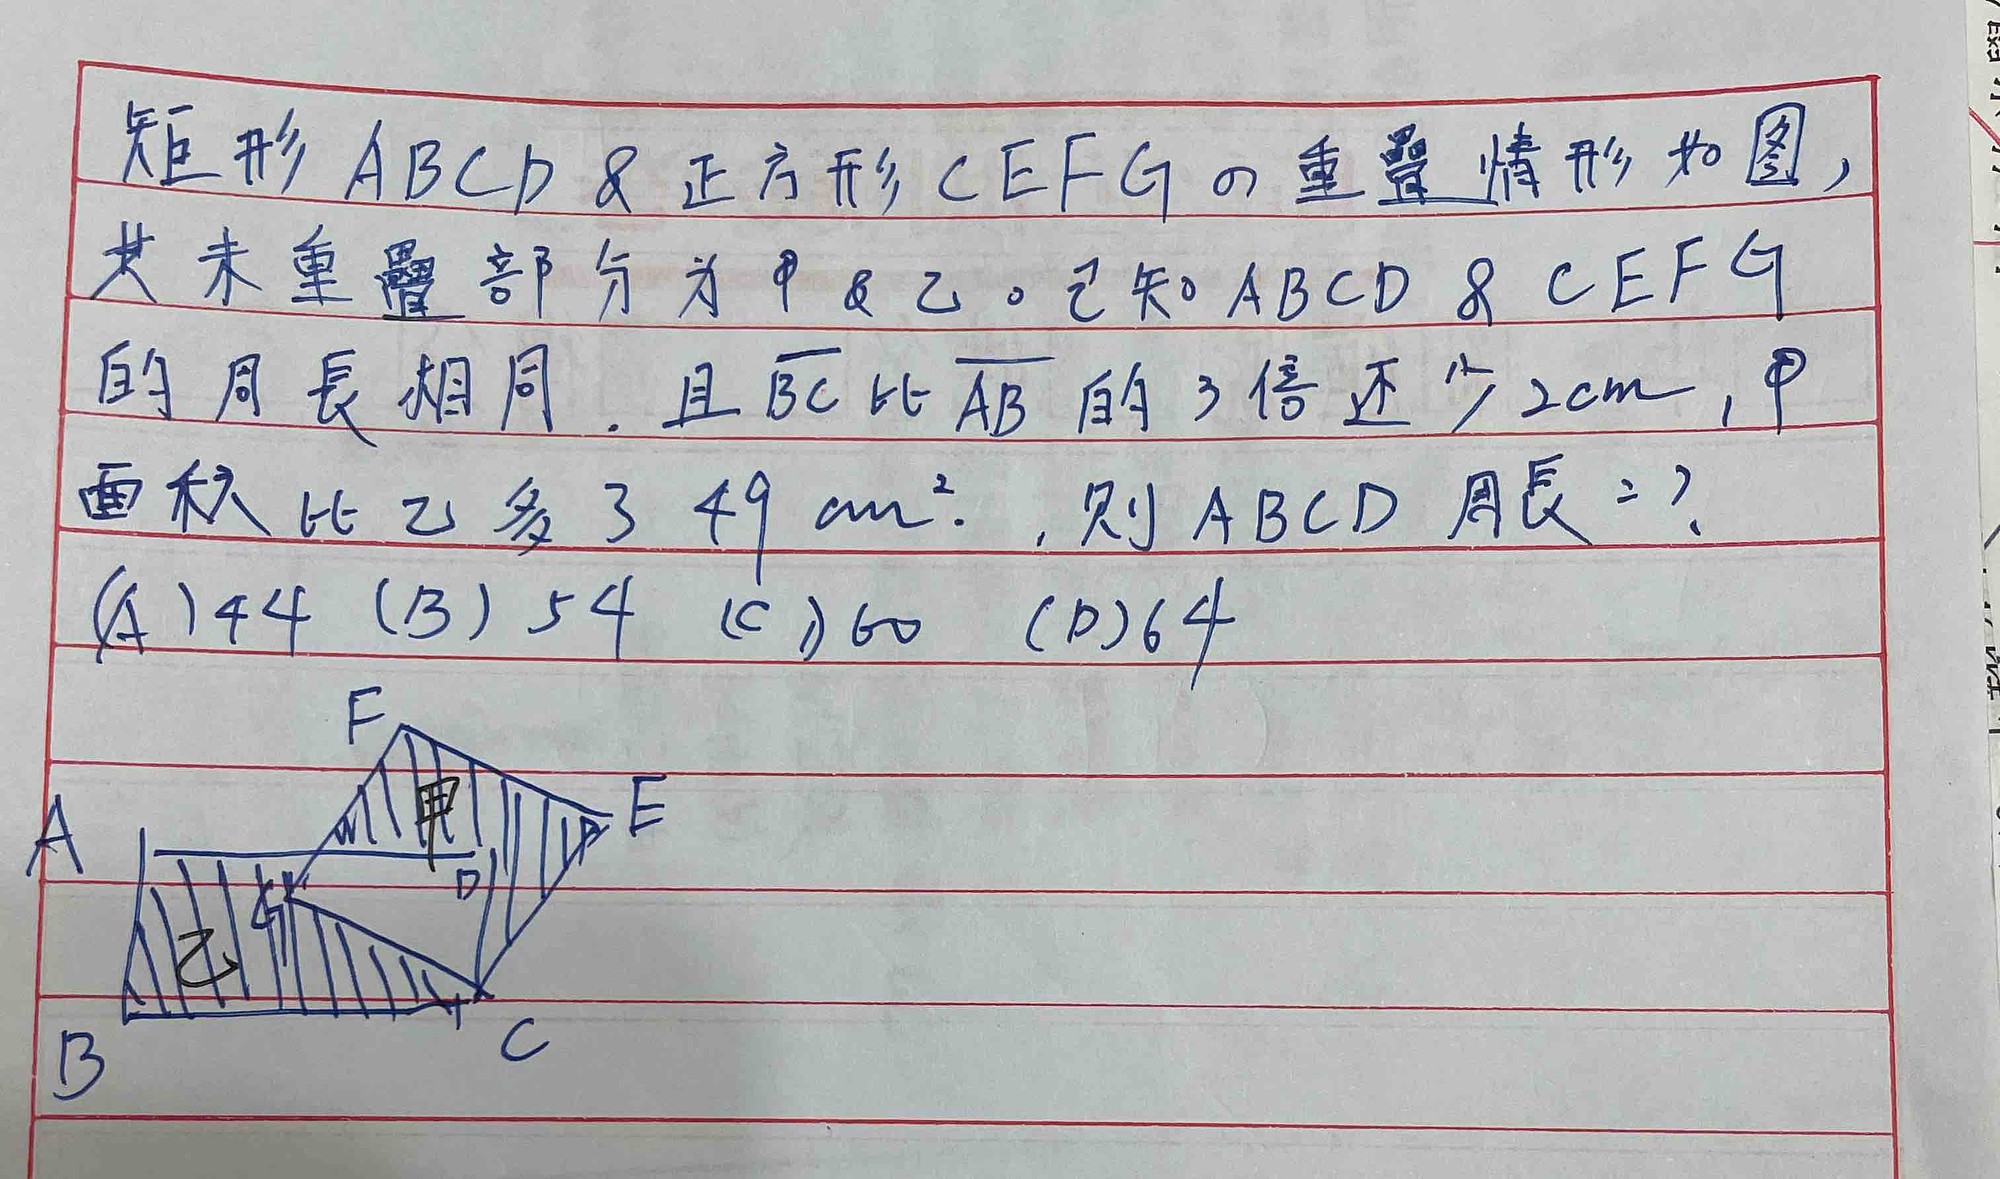 矩形ABCD&正方形CEFGの重疊情形如图,
其未重疊部分为甲&乙。已知ABCD&CEFG
的周長相同.且BC比AB的3倍还少2cm,甲
面积比乙多349cm².,则ABCD周長=?
(A)44 (B)54 (C)60 (D)64
F
甲
E
A
D
G
乙
B
C